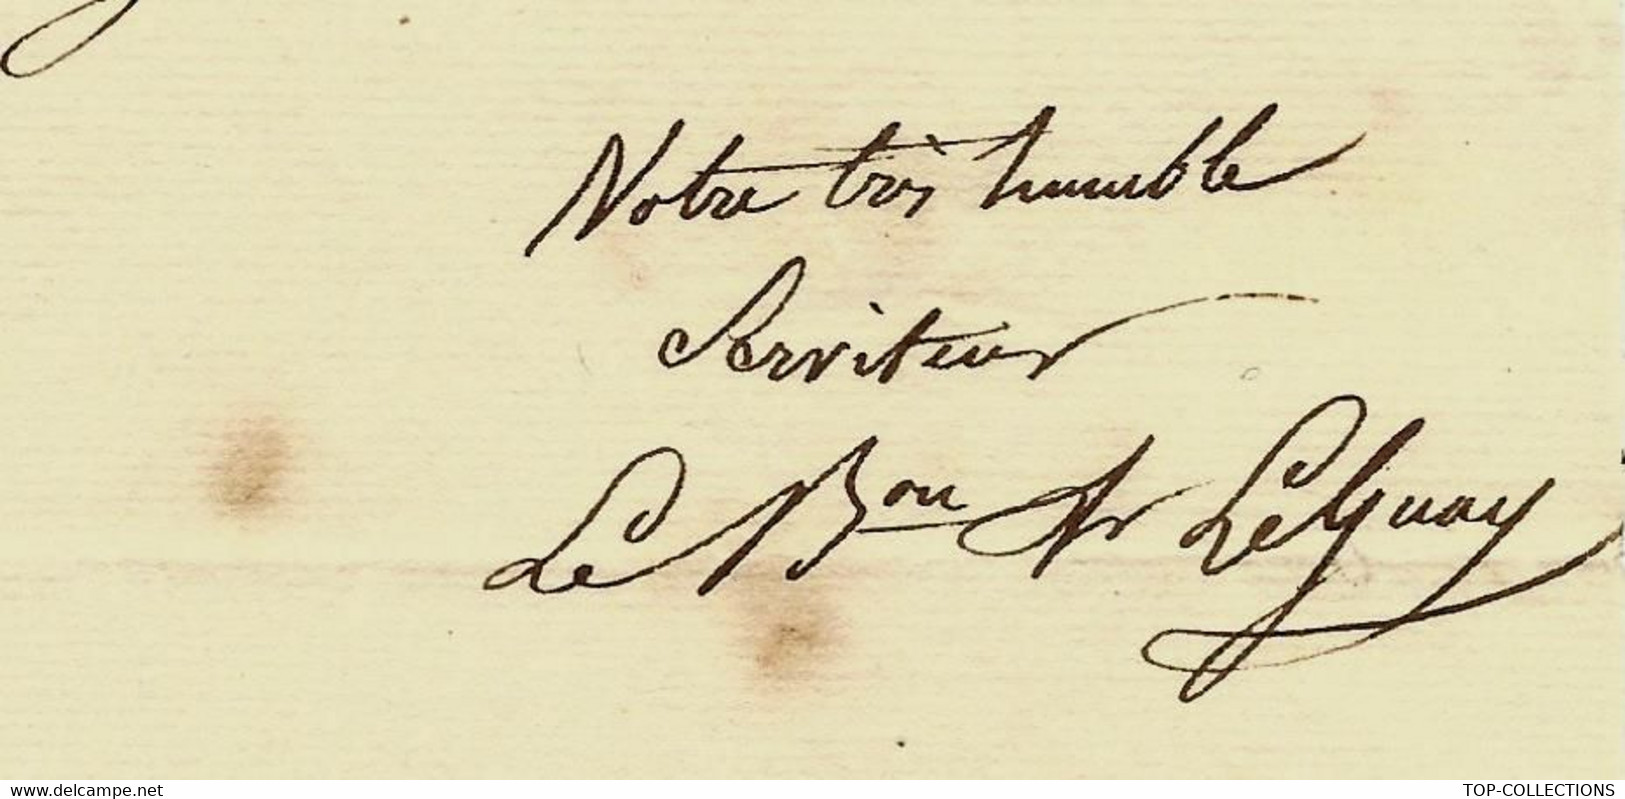 Votre très humble
Serviteur
Le Bon Ar LeGuay
www.delcampe.net
TOP-COLLECTIONS